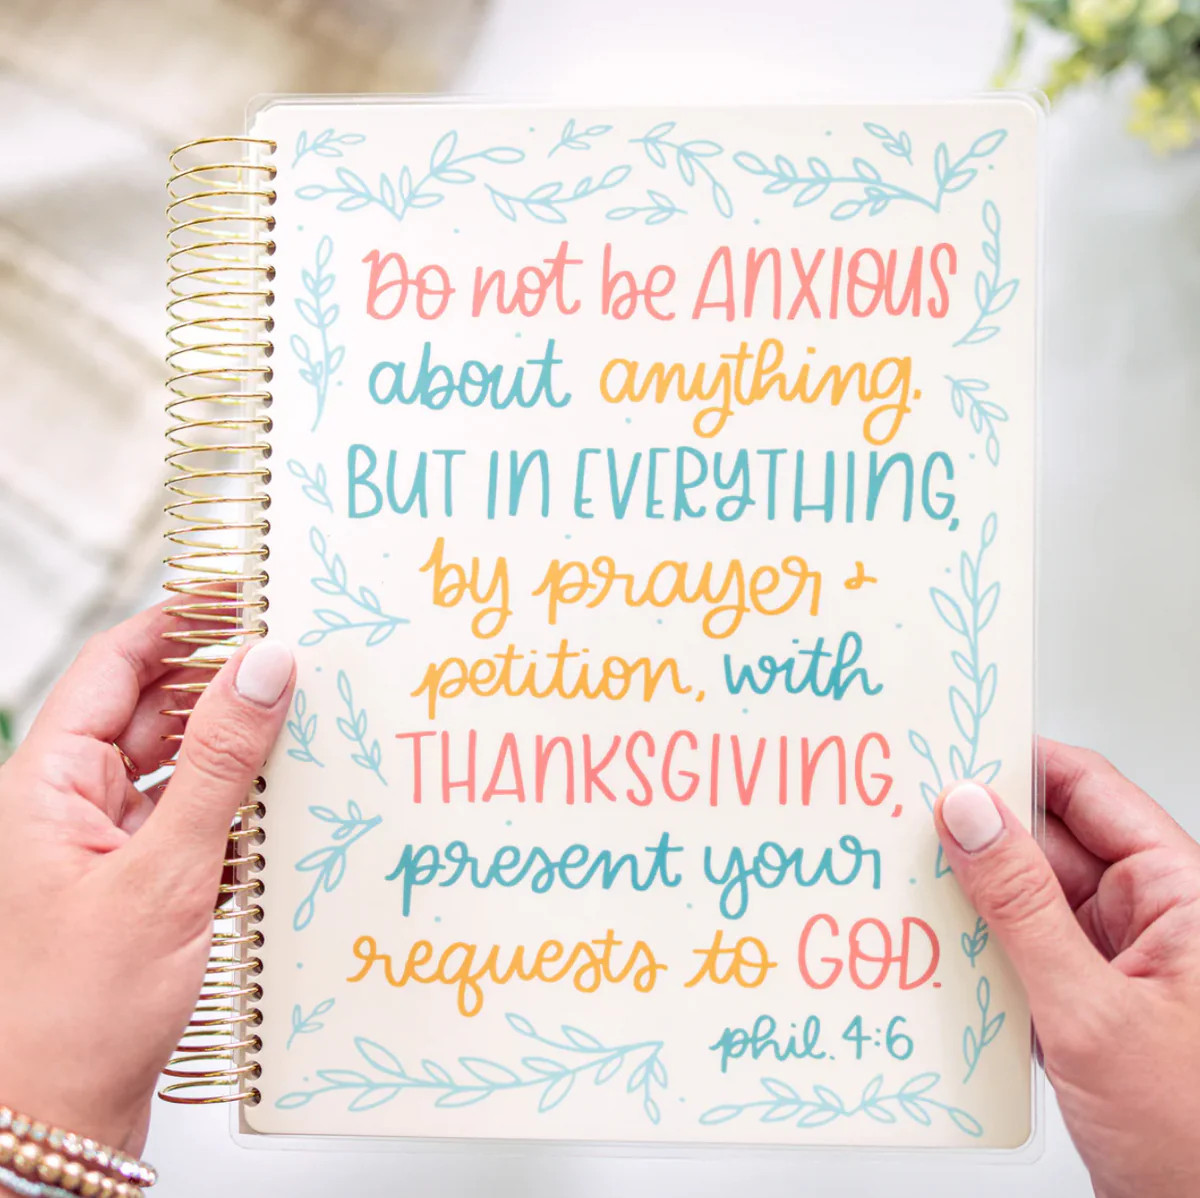 Do not be ANXIOUS
about anything.
BUT IN EVERYTHING,
by prayer +
petition, with
THANKSGIVING,
present your
requests to GOD.
phil. 4:6